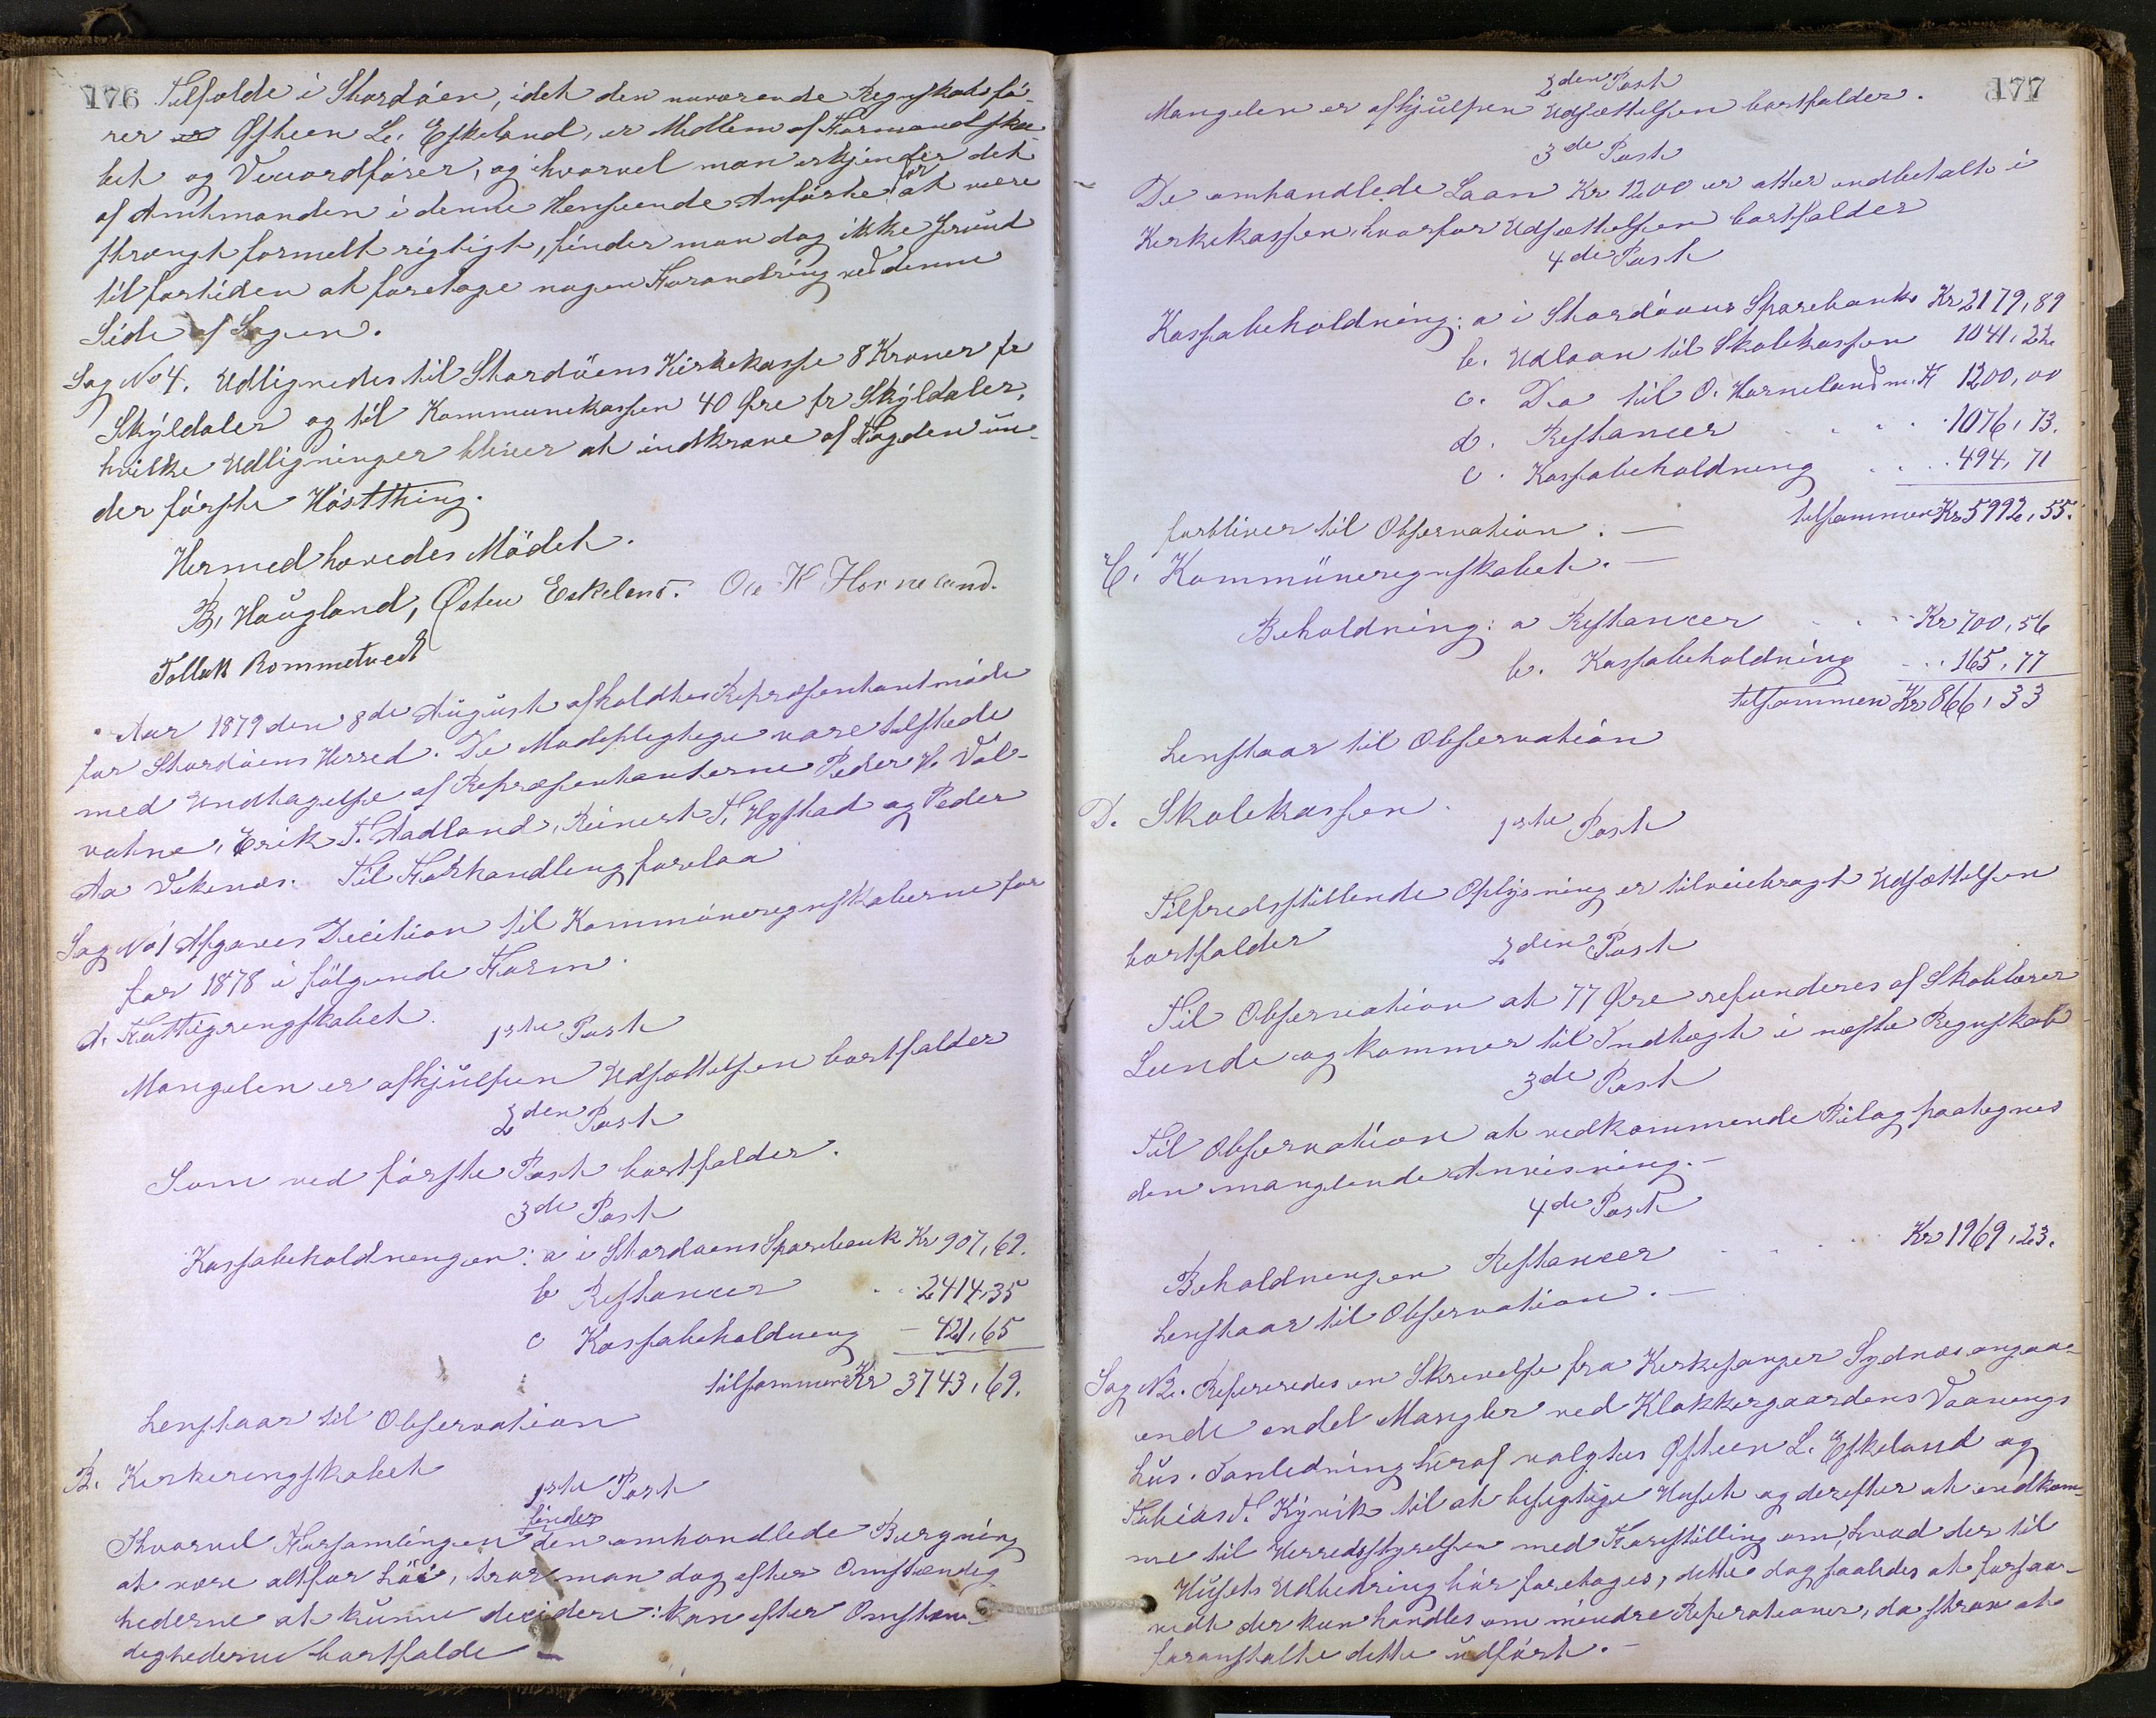 176
Tilfælde i Stordøen, idet den nuværende Regnskabsfø-
rer Østeen L. Eskeland, er Medlem af Formandska-
bet og Viceordfører, og ihvorvel man erkjender det
af Amtmanden i denne Henseende Anførte for at være
strengt formelt rigtigt, finder man dog ikke Grund
til fortiden at foretage nogen Forandring ved denne
Side af Sagen.
Sag No 4. Udlignedes til Stordöens Kirkekasse 8 Kroner pr
Skÿldaler og til Kommunekassen 40 Øre pr Skÿldaler,
hvilke Udligninger bliver at indkræve af Fogden un-
der første Høstthing.
Hermed hævedes Mödet.
B. Haugland, Østen Eskeland. Ole K Horneland.
Tollak Rommetvedt
Aar 1879 den 8de August afholdtes Repræsentantmøde
for Stordøens Herred. De Mødepligtige vare tilstede
med Undtagelse af Repræsentanterne Peder H. Val-
vatne, Erik T. Aadland, Reinert T. Hystad og Peder
Aa Vikenæs. Til Forhandling forelaa
Sag No 1 Afgaves Decition til Kommuneregnskaberne for
for 1878 i følgende Form.
A. Fattigrengskabet.
1ste Post
Mangelen er afhjulpen Udsættelsen bortfalder
2den Post
Som ved første Post bortfalder.
3de Post
Kassabeholdningen: a i Stordøens Sparebank Kr 907,69.
b Restancer . . 2414,35
c Kassabeholdning — 421,65
tilsammen Kr 3743,69.
henstaar til Observation
B. Kirkerengskabet
1ste Post
Ihvorvel Forsamlingen finder den omhandlede Beregning
at være altfor høi, tror man dog efter Omstændig-
hederne at kunne decidere: kan efter Omstæn-
dighederne bortfalde —
177
2den Post
Mangelen er afhjulpen Udsættelsen bortfalder.
3de Post
De omhandlede Laan Kr 1200 er atter indbetalt i
Kirkekassen, hvorfor Udsættelsen bortfalder
4de Post
Kassabeholdning: a i Stordøens Sparebank Kr 2179,89
b. Udlaan til Skolekassen 1041,22
c. Do til O. Horneland m. K 1200,00
d. Restancer . . . . 1076,73.
e. Kassabeholdning . . . . 494,71
tilsammen Kr 5992,55.
forbliver til Observation. —
C. Kommüneregnskabet. —
Beholdning: a Restancer . . . Kr 700,56
b. Kassabeholdning . . . 165,77
tilsammen Kr 866,33
henstaar til Observation
D. Skolekassen.
1ste Post
Tilfredsstillende Oplysning er tilveiebragt Udsættelsen
bortfalder
2den Post
Til Observation at 77 Øre refunderes af Skolelærer
Lunde og kommer til Indtægt i næste Regnskab
3de Post
Til Observation at vedkommende Bilag paategnes
den manglende Anvisning. —
4de Post
Beholdningen Restancer . . . . Kr 1969,23.
henstaar til Observation. —
Sag N 2. Refereredes en Skrivelse fra Kirkesanger Sydnæs angaa-
ende endel Mangler ved Klokkergaardens Vaanings
hus. I anledning heraf valgtes Østeen L. Eskeland og
Tobias T. Kyvik til at besigtige Huset og derefter at indkom-
me til Herredsstyrelsen med Forestilling om, hvad der til
Husets Udbedring bør foretages, dette dog saaledes at forsaa-
vidt der kun handles om mindre Reperationer, da strax at
foranstalte dette udført. —